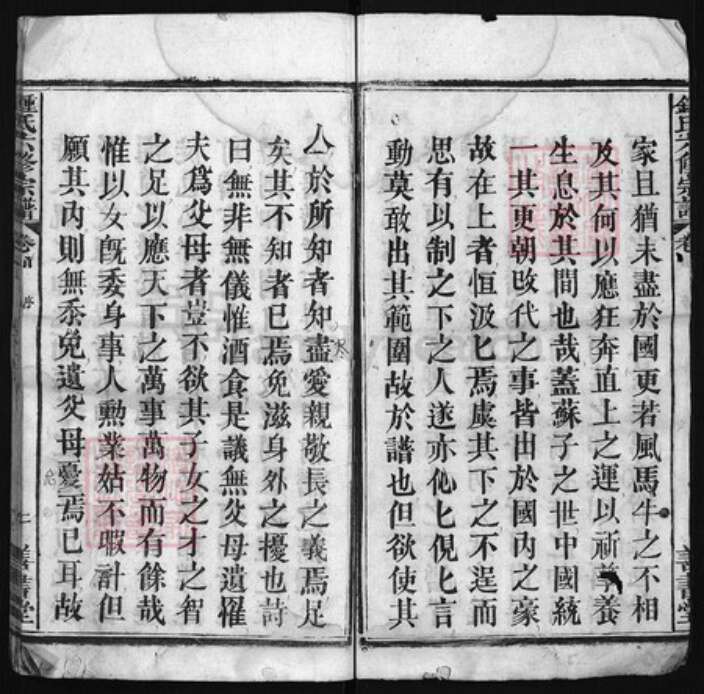 家且猶未盡於國更若風馬牛之不相
及其何以應狂奔直上之運以祈尊養
生息於其間也哉蓋蘇子之世中國統
一其更朝改代之事皆出於國內之豪
故在上者恒汲匕焉虞其下之不逞而
思有以制之下之人遂亦仳匕俔匕言
動莫敢出其範圍故於譜也但欲使其
人於所知者知盡愛親敬長之義焉足
矣其不知者已焉免滋身外之擾也詩
曰無非無儀惟酒食是議無父母遺罹
夫爲父母者豈不欲其子女之才之智
之足以應天下之萬事萬物而有餘哉
惟以女旣委身事人勳業姑不暇計但
願其內則無忝免遺父母憂焉已耳故
鍾氏六修宗譜
卷首
序
七
善書堂
鍾氏六修宗譜
卷
善書堂